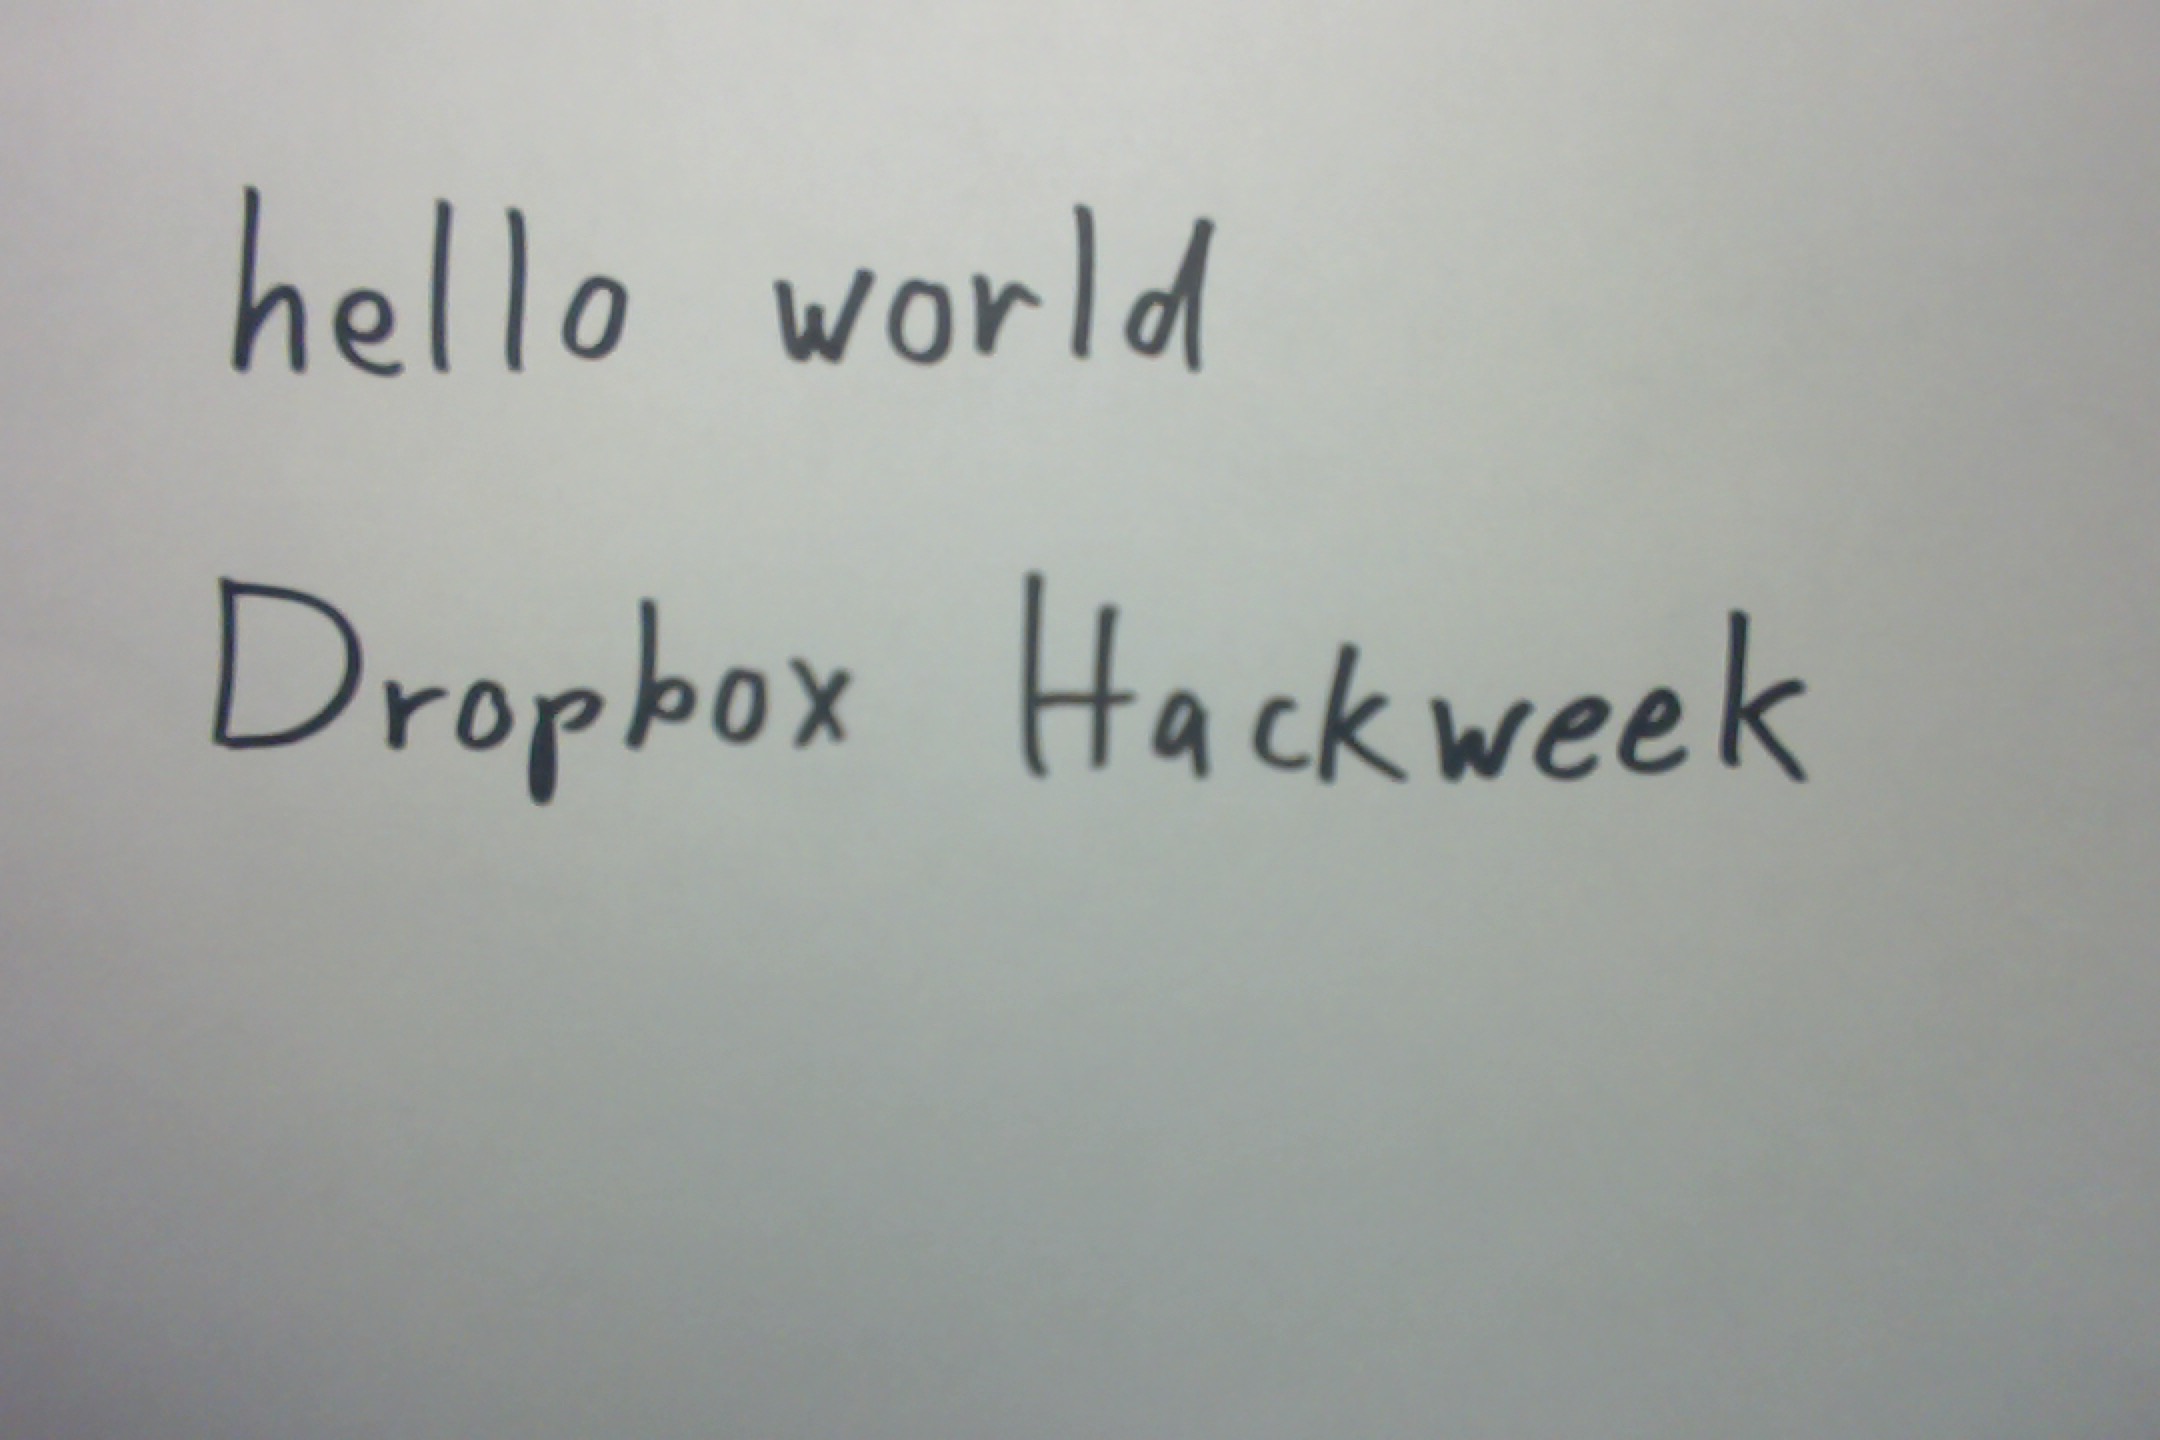 hello world
Dropbox Hackweek